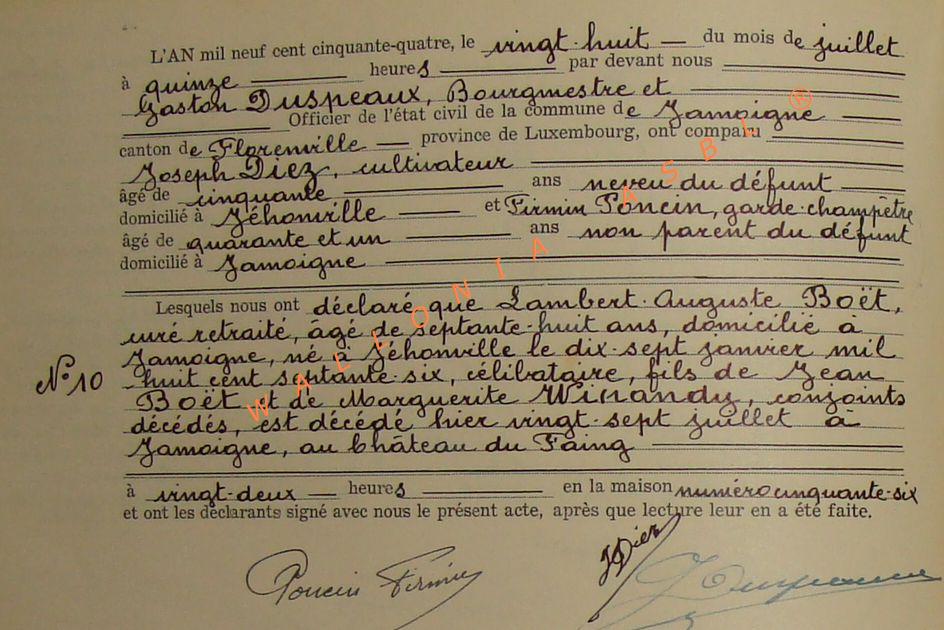 L'AN mil neuf cent cinquante-quatre, le vingt-huit — du mois de juillet
à quinze — heures — par devant nous
Gaston Duspeaux, Bourgmestre et
Officier de l'état civil de la commune de Jamoigne
canton de Florenville — province de Luxembourg, ont comparu
Joseph Diez, cultivateur
âgé de cinquante — ans neveu du défunt
domicilié à Jéhonville — et Firmin Poncin, garde-champêtre
âgé de quarante et un — ans non parent du défunt
domicilié à Jamoigne
Lesquels nous ont déclaré que Lambert-Auguste Boët,
curé retraité, âgé de septante-huit ans, domicilié à
Jamoigne, né à Jéhonville le dix-sept janvier mil
N° 10 huit cent septante-six, célibataire, fils de Jean
Boët et de Marguerite Winandy, conjoints
décédés, est décédé hier vingt-sept juillet à
Jamoigne, au Château du Faing
à vingt-deux — heures — en la maison numéro cinquante-six
et ont les déclarants signé avec nous le présent acte, après que lecture leur en a été faite.
Poncin Firmin JDiez
WALLONIA ASBL ®